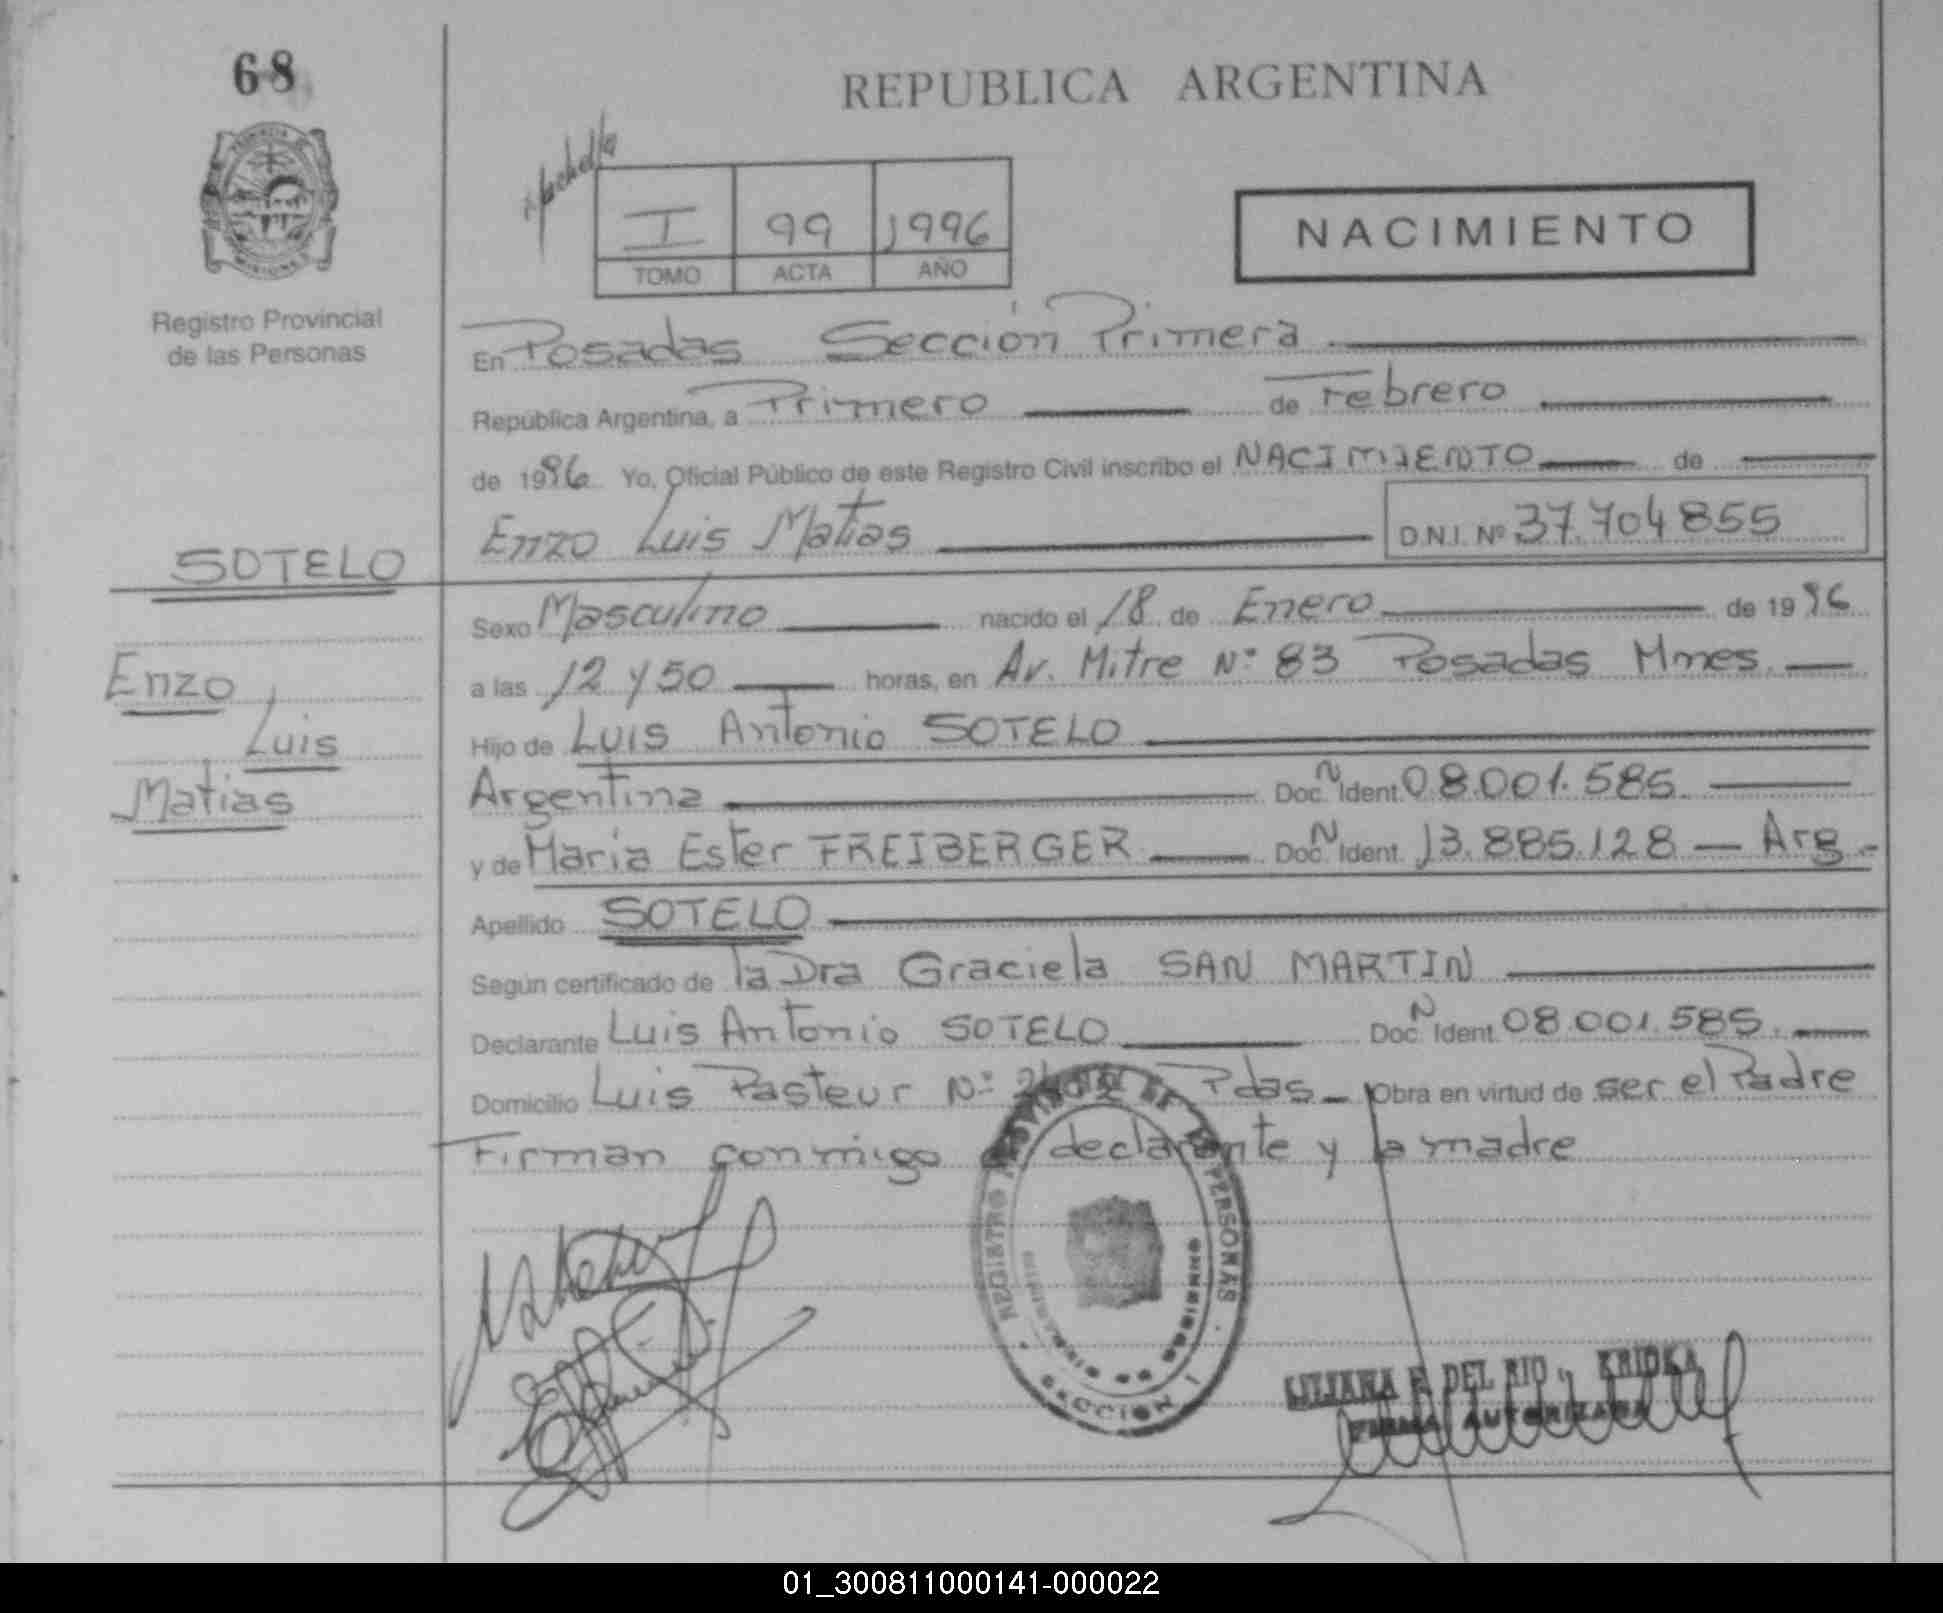 68
REPUBLICA ARGENTINA
I 99 1996
TOMO ACTA AÑO
NACIMIENTO
Registro Provincial
de las Personas
En Posadas Sección Primera
República Argentina, a Primero de Febrero
de 1996 Yo, Oficial Público de este Registro Civil inscribo el NACIMIENTO de
Enzo Luis Matias D.N.I. Nº 37.704855
SOTELO
Enzo
Luis
Matias
Sexo Masculino nacido el 18 de Enero de 1996
a las 12 y 50 horas, en Av. Mitre Nº 83 Posadas Mnes.
Hijo de Luis Antonio SOTELO
Argentina Doc. N Ident. 08.001.585
y de Maria Ester FREIBERGER Doc. N Ident. 13.885.128 — Arg.-
Apellido SOTELO
Según certificado de la Dra Graciela SAN MARTIN
Declarante Luis Antonio SOTELO Doc. N Ident. 08.001.585.
Domicilio Luis Pasteur Nº Pdas — Obra en virtud de ser el Padre
Firman conmigo declarante y la madre
REGISTRO PROVINCIAL DE LAS PERSONAS
SECCION 1
LILIANA F. DEL RIO
FIRMA AUTORIZADA
01_300811000141-000022